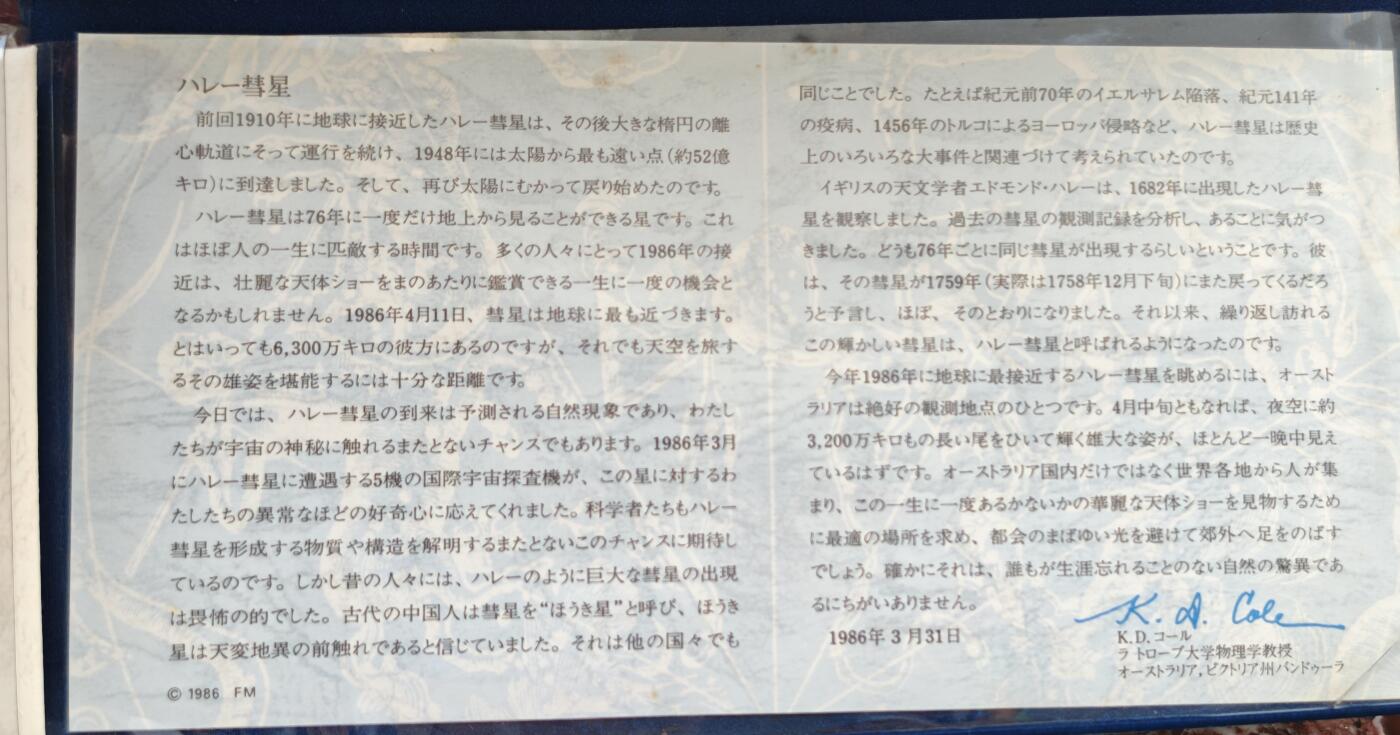 ハレー彗星
前回1910年に地球に接近したハレー彗星は、その後大きな楕円の離
心軌道にそって運行を続け、1948年には太陽から最も遠い点(約52億
キロ)に到達しました。そして、再び太陽にむかって戻り始めたのです。
ハレー彗星は76年に一度だけ地上から見ることができる星です。これ
はほぼ人の一生に匹敵する時間です。多くの人々にとって1986年の接
近は、壮麗な天体ショーをまのあたりに鑑賞できる一生に一度の機会と
なるかもしれません。1986年4月11日、彗星は地球に最も近づきます。
とはいっても6,300万キロの彼方にあるのですが、それでも天空を旅す
るその雄姿を堪能するには十分な距離です。
今日では、ハレー彗星の到来は予測される自然現象であり、わたし
たちが宇宙の神秘に触れるまたとないチャンスでもあります。1986年3月
にハレー彗星に遭遇する5機の国際宇宙探査機が、この星に対するわ
たしたちの異常なほどの好奇心に応えてくれました。科学者たちもハレー
彗星を形成する物質や構造を解明するまたとないこのチャンスに期待し
ているのです。しかし昔の人々には、ハレーのように巨大な彗星の出現
は畏怖の的でした。古代の中国人は彗星を“ほうき星”と呼び、ほうき
星は天変地異の前触れであると信じていました。それは他の国々でも
© 1986 FM
同じことでした。たとえば紀元前70年のイエルサレム陥落、紀元141年
の疫病、1456年のトルコによるヨーロッパ侵略など、ハレー彗星は歴史
上のいろいろな大事件と関連づけて考えられていたのです。
イギリスの天文学者エドモンド・ハレーは、1682年に出現したハレー彗
星を観察しました。過去の彗星の観測記録を分析し、あることに気がつ
きました。どうも76年ごとに同じ彗星が出現するらしいということです。彼
は、その彗星が1759年(実際は1758年12月下旬)にまた戻ってくるだろ
うと予言し、ほぼ、そのとおりになりました。それ以来、繰り返し訪れる
この輝かしい彗星は、ハレー彗星と呼ばれるようになったのです。
今年1986年に地球に最接近するハレー彗星を眺めるには、オースト
ラリアは絶好の観測地点のひとつです。4月中旬ともなれば、夜空に約
3,200万キロもの長い尾をひいて輝く雄大な姿が、ほとんど一晩中見え
ているはずです。オーストラリア国内だけではなく世界各地から人が集
まり、この一生に一度あるかないかの華麗な天体ショーを見物するため
に最適の場所を求め、都会のまばゆい光を避けて郊外へ足をのばす
でしょう。確かにそれは、誰もが生涯忘れることのない自然の驚異であ
るにちがいありません。
K. D. Cole
1986年3月31日
K.D.コール
ラ トローブ大学物理学教授
オーストラリア,ビクトリア州バンドゥーラ